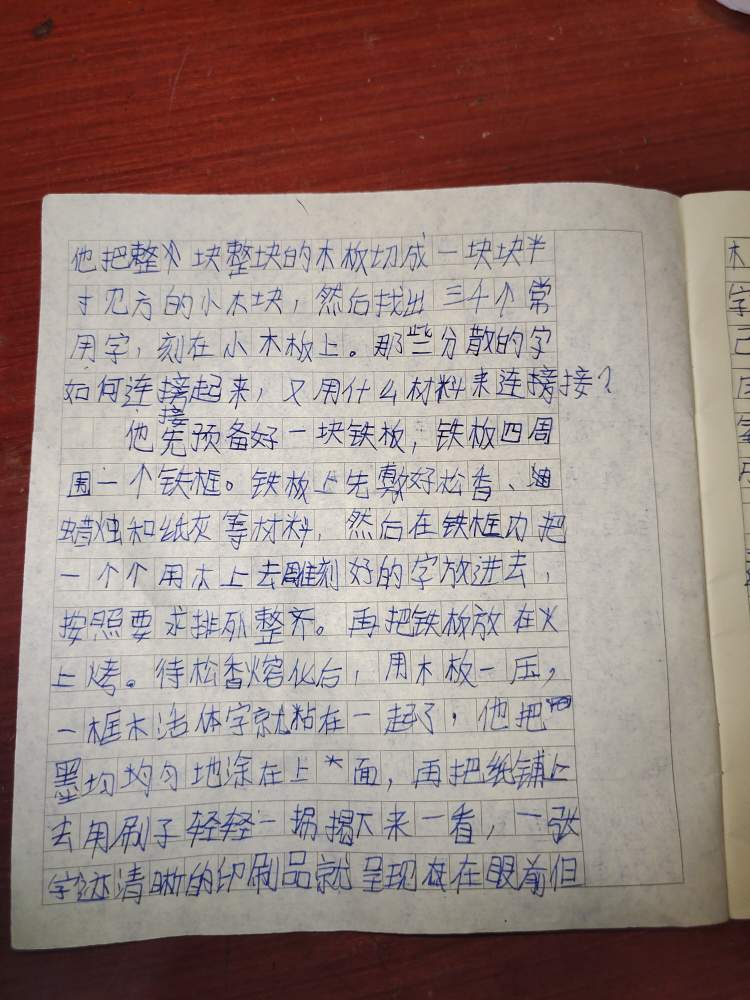 他把整块整块的木板切成一块块半
寸见方的小木块，然后找出三千个常
用字，刻在小木板上。那些分散的字
如何连接起来，又用什么材料来连接？
他先预备好一块铁板，铁板四周
围一个铁框。铁板上先敷好松香、
蜡烛和纸灰等材料，然后在铁框内把
一个个用木上去雕刻好的字放进去，
按照要求排列整齐。再把铁板放在火
上烤。待松香熔化后，用木板一压，
一框木活体字就粘在一起了，他把
墨均均匀地涂在上面，再把纸铺上
去用刷子轻轻一揭下来一看，一张
字迹清晰的印刷品就呈现在眼前但
木
字
己